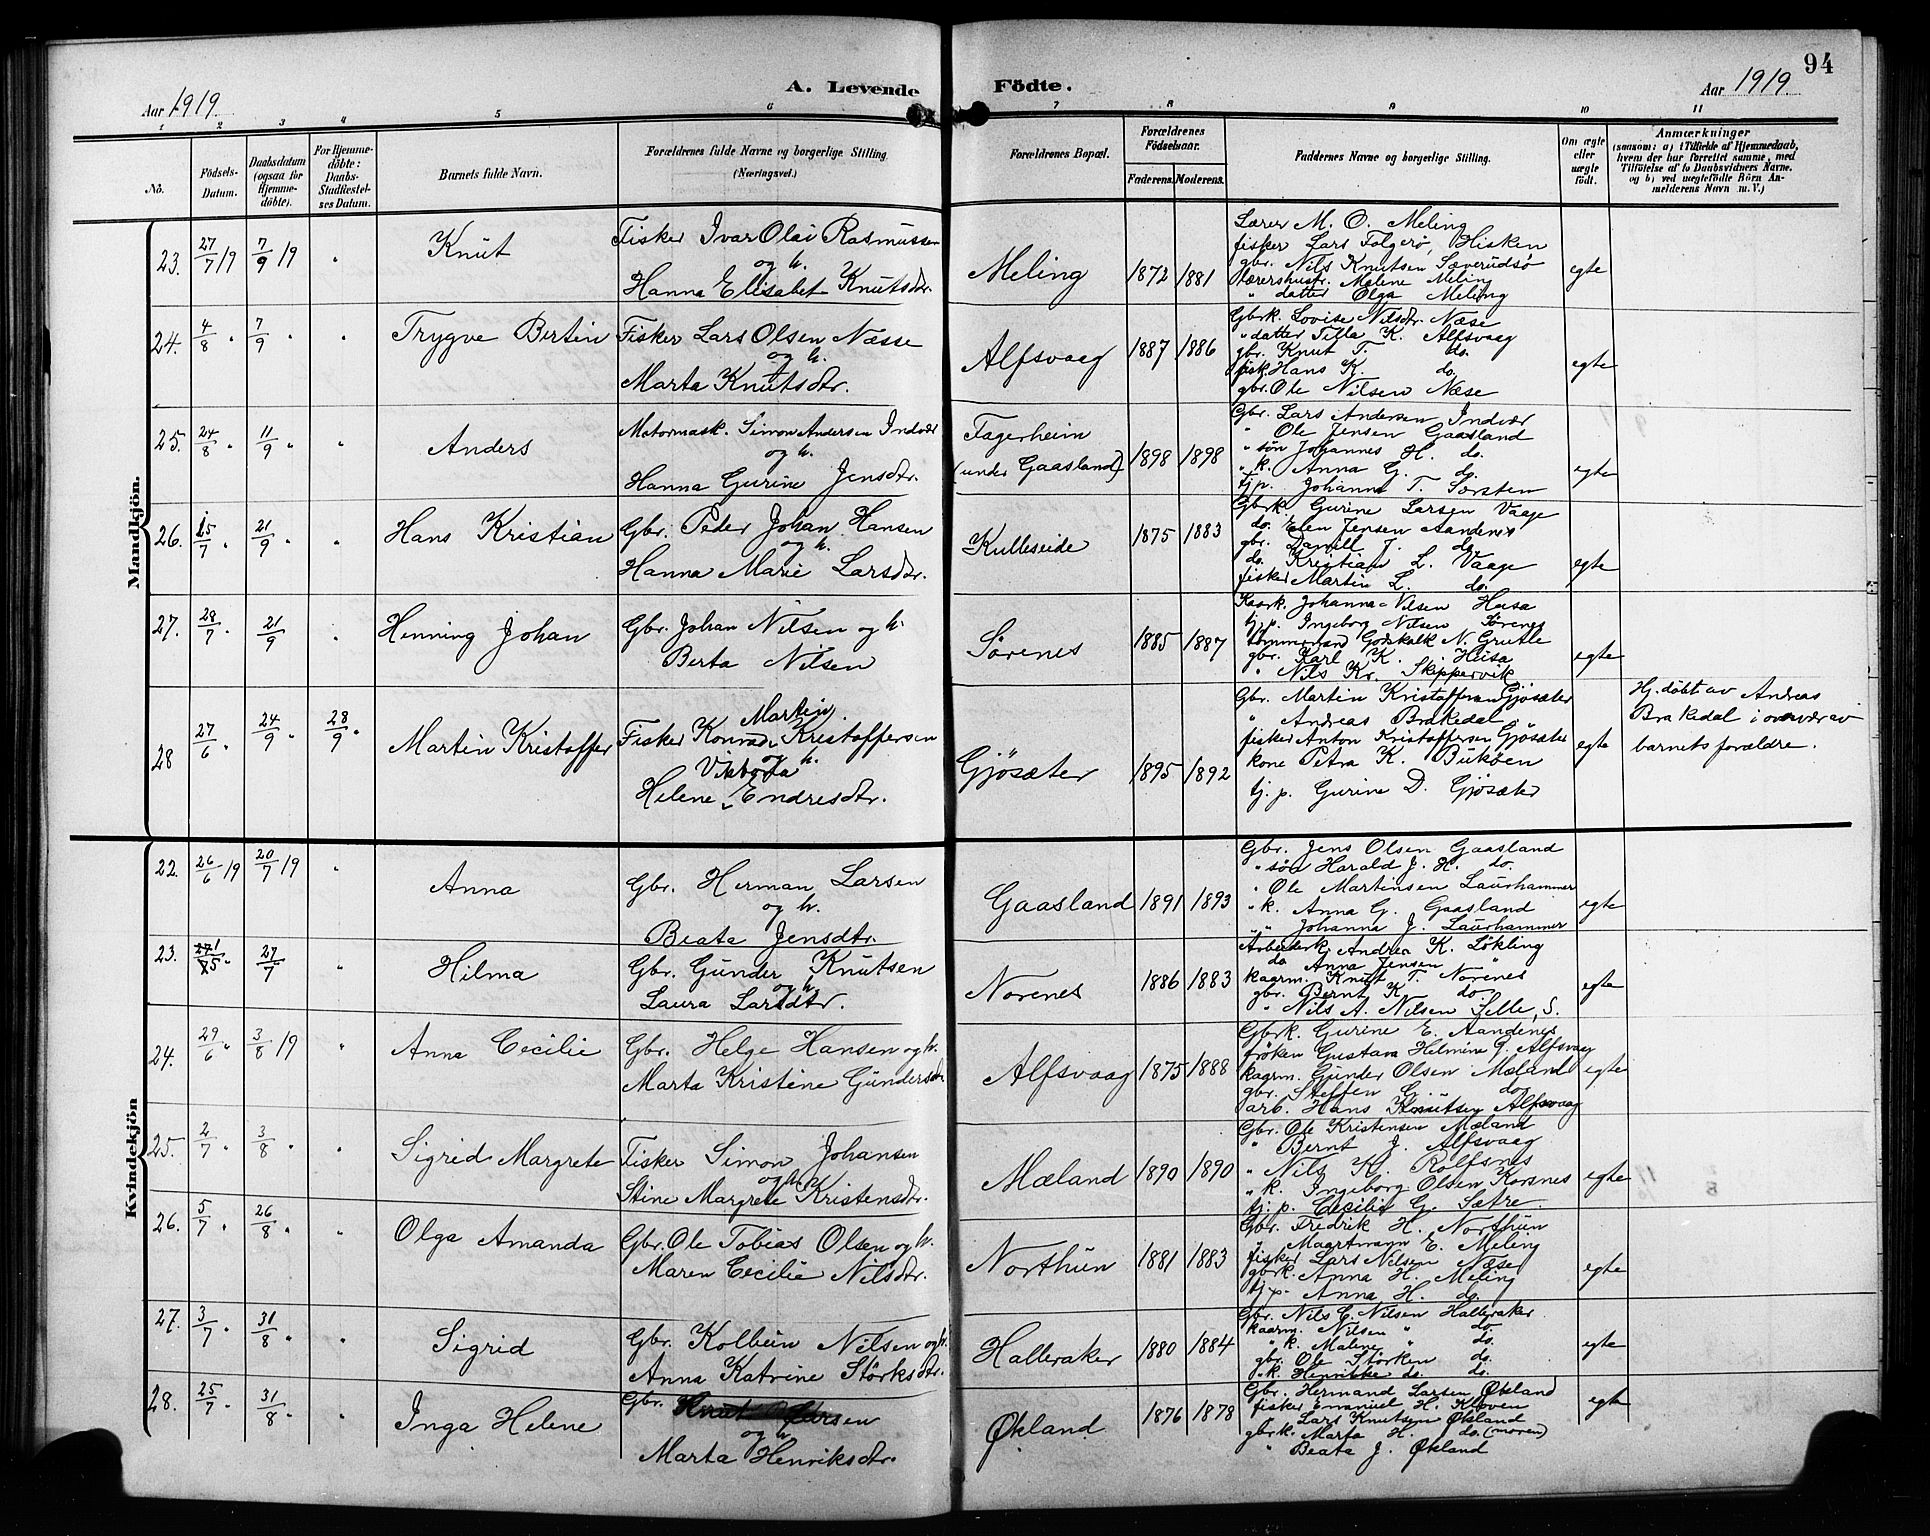 94
Aar 1919.
A. Levende Födte.
Aar 1919.
1 2 3 4 5 6 7 8 9 10 11
No.
Födsels-Datum.
Daabsdatum (ogsaa for Hjemme-döbte).
For Hjemme-döbte: Daabs-Stadfæstel-ses Datum.
Barnets fulde Navn.
Forældrenes fulde Navne og borgerlige Stilling. (Næringsvei.)
Forældrenes Bopæl.
Forældrenes Födselsaar.
Faderens. Moderens.
Faddernes Navne og borgerlige Stilling.
Om ægte eller uægte födt.
Anmærkninger
(saasom: a) i Tilfælde af Hjemmedaab, hvem der har forrettet samme, med Tilföielse af to Daabsvidners Navne. og b) ved uægtefödte Börn An-melderens Navn m. V.)
Mandkjön.
23. 27/7 19 7/9 19 " Knut
Fisker Ivar Olai Rasmussen
og h.
Hanna Elisabet Knutsdtr.
Meling 1872 1881
Lærer M. O. Meling
fisker Lars Folgerø, Hisken
gbr. Nils Knutsen Sæverudsø
Lærershustr. Malene Meling
" datter Olga Meling
egte
24. 4/8 " 7/9 " " Trygve Bertin
Fisker Lars Olsen Næsse
og h.
Marta Knutsdtr.
Alfsvaag 1887 1886
Gbrk. Lovise Nilsdtr. Næse
" datter Tilla K. Alfsvaag
gbr. Knut T. do.
fisk. Hans K. do.
gbr. Ole Nilsen Næse
egte
25. 24/8 " 11/9 " " Anders
Motormask. Simon Andersen Indvær
og h.
Hanna Gurine Jensdtr.
Fagerheim
(under Gaasland) 1898 1898
Gbr. Lars Andersen Indvær
" Ole Jensen Gaasland
" søn Johannes H. do.
" k. Anna G. do.
tj.p. Johanna T. Sørsten
egte
26. 15/7 " 21/9 " " Hans Kristian
Gbr. Peder Johan Hansen
og h.
Hanna Marie Larsdtr.
Kulleseide 1875 1883
Gbrk. Gurine Larsen Vaage
do. Elen Jensen Aandenes
gbr. Danill J. do.
do. Kristian L. Vaage
fisker Martin L. do.
egte
27. 28/7 " 21/9 " Henning Johan
Gbr. Johan Nilsen og h.
Berta Nilsen
Sørenes 1885 1887
Kaark. Johanna Nilsen Husa
tj.p. Ingeborg Nilsen Sørenes
tømmermand Godskalk N. Grutle
gbr. Karl K. Husa
" Nils Kr. Skippervik
egte
28 27/6 " 24/9 " 28/9 " Martin Kristoffer
Martin
Fisker Konrad Kristoffersen
og h.
Viktoria
Helene Endresdtr.
Gjøsæter 1895 1892
Gbr. Martin Kristoffersen Gjøsæter
" Andreas Brakedal
fisker Anton Kristoffersen Gjøsæter
kone Petra K. Bukøen
tj. p. Gurine D. Gjøsæter
egte
Hj. döbt av Andreas
Brakedal i overvær av
barnets forældre.
Kvindekjön
22. 26/6 19 20/7 19 " Anna
Gbr. Herman Larsen
og h.
Beate Jensdtr.
Gaasland 1891 1893
Gbr. Jens Olsen Gaasland
" søn Harald J. H. do.
" Ole Martinsen Laurhammer
" k. Anna G. Gaasland
" " Johanna J. Laurhammer
egte
23. 27/7 " Hilma
Gbr. Gunder Knutsen
og h.
Laura Larsdtr.
Norenes 1886 1883
Arbeiderk. Andrea K. Løkling
do Anna Jensen "
kaarm. Knut T. Norenes
gbr. Bernt K. do.
" Nils A. Nilsen Selle, S.
egte
24. 29/6 " 3/8 19 " Anna Cecilie
Gbr. Helge Hansen og h.
Marta Kristine Gundersdtr
Alfsvaag 1875 1888
Gbrk. Gurine E. Aandenes
frøken Gustava Helmine G. Alfsvaag
kaarm. Gunder Olsen Mæland
gbr. Steffen G. do.
arb. Hans Knutsen Alfsvaag
egte
25. 2/7 " 3/8 " " Sigrid Margrete
Fisker Simon Johansen
og h.
Stine Margrete Kristensdtr.
Mæland 1890 1890
Gbr. Ole Kristensen Mæland
" Bernt J. Alfsvaag
" Nils K. Rolfsnes
" k. Ingeborg Olsen Korsnes
tj. p. Cecilie G. Sætre.
egte
26. 5/7 " 26/8 " " Olga Amanda
Gbr. Ole Tobias Olsen og h.
Maren Cecilie Nilsdtr.
Northun 1881 1883
Gbr. Fredrik H. Northun
" Maartmann E. Meling
fisker Lars Nilsen Næse
gbrk. Anna H. Meling
tj.p. Anna H. do.
egte
27. 3/7 " 31/8 " " Sigrid
Gbr. Kolbein Nilsen og h.
Anna Katrine Størksdtr.
Halleraker 1880 1884
Gbr. Nils C. Nilsen Halleraker
kaarm. Nilsen " do
" k. Malene " do.
gbr. Ole Størken do.
" k. Henrikke do. do.
egte
28. 25/7 " 31/8 " " Inga Helene
Gbr.
og h.
Marta Henriksdtr.
Økland 1876 1878
Gbr. Hermand Larsen Økland
fisker Emanuel H. Kloven
" Lars Knutsen Økland
gbrk. Marta H. do. (moren)
" Beata J. Økland
egte